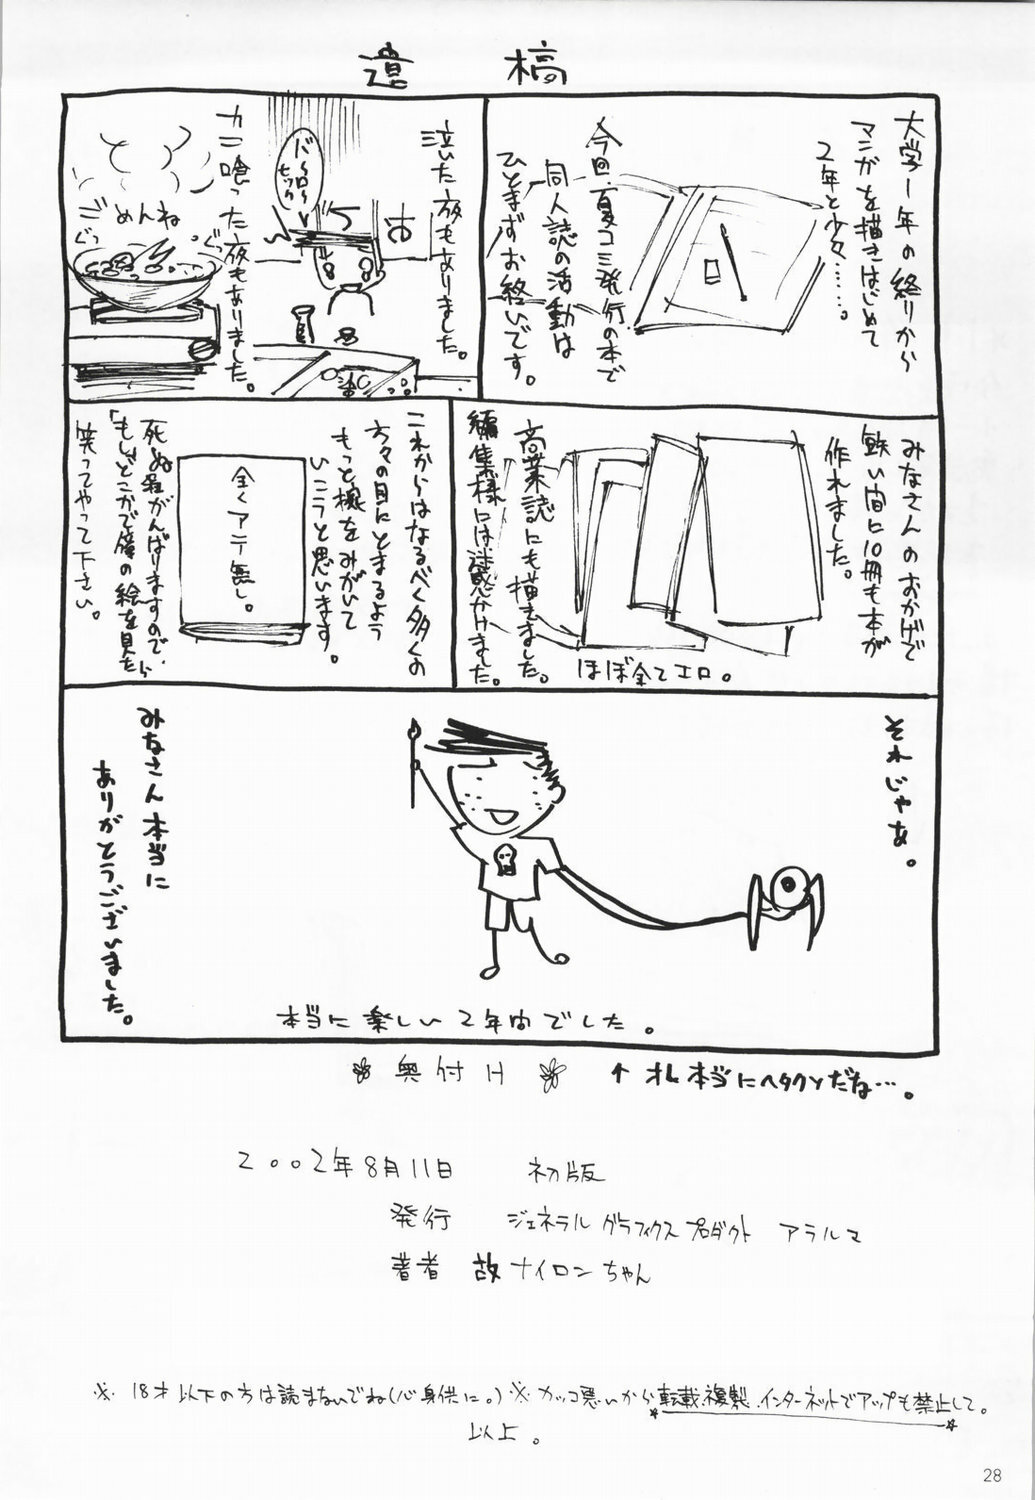 遺稿
大学1年の終りから
マンガを描きはじめて
2年と少々……。
今回、夏コミ発行の本で
同人誌の活動は
ひとまずお終いです。
泣いた夜もありました。
カニ喰った夜もありました。
ごめんね
ぐつ
ぐつ
みなさんのおかげで
短い間に10冊も本が
作れました。
商業誌にも描きました。
編集様には迷惑かけました。
ほぼ全てエロ。
これからはなるべく多くの
方々の目にとまるよう
もっと腕をみがいて
いこうと思います。
全くアテ無し。
死ぬ程がんばりますので、
もしどこかで僕の絵を見たら
笑ってやって下さい。
それじゃあ。
みなさん本当に
ありがとうございました。
本当に楽しい2年間でした。
奥付け
↑オレ本当にヘタクソだね…。
2002年8月11日 初版
発行 ジェネラルグラフィクスプロダクト アラルマ
著者 故ナイロンちゃん
※18才以下の方は読まないでね(心身供に。)※カッコ悪いから転載、複製、インターネットでアップも禁止して。
以上。
28